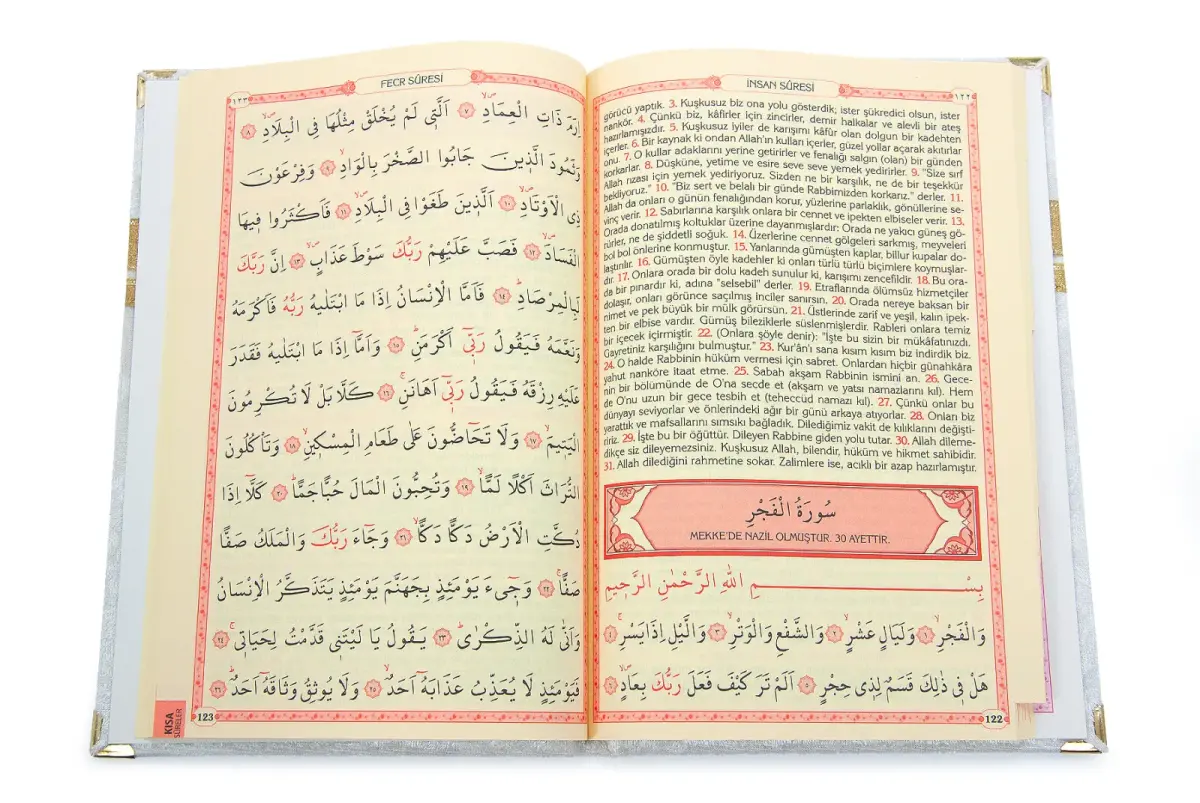 İNSAN SÛRESİ
١٢٢
görücü yaptık. 3. Kuşkusuz biz ona yolu gösterdik; ister şükredici olsun, ister
nankör. 4. Çünkü biz, kâfirler için zincirler, demir halkalar ve alevli bir ateş
hazırlamışızdır. 5. Kuşkusuz iyiler de karışımı kâfûr olan dolgun bir kadehten
içerler. 6. Bir kaynak ki ondan Allah'ın kulları içerler, güzel yollar açarak akıtırlar
onu. 7. O kullar adaklarını yerine getirirler ve fenalığı salgın (olan) bir günden
korkarlar. 8. Düşküne, yetime ve esire seve seve yemek yedirirler. 9. "Size sırf
Allah rızası için yemek yediriyoruz. Sizden ne bir karşılık, ne de bir teşekkür
bekliyoruz." 10. "Biz sert ve belalı bir günde Rabbimizden korkarız." derler. 11.
Allah da onları o günün fenalığından korur, yüzlerine parlaklık, gönüllerine se-
vinç verir. 12. Sabırlarına karşılık onlara bir cennet ve ipekten elbiseler verir. 13.
Orada donatılmış koltuklar üzerine dayanmışlardır: Orada ne yakıcı güneş gö-
rürler, ne de şiddetli soğuk. 14. Üzerlerine cennet gölgeleri sarkmış, meyveleri
bol bol önlerine konmuştur. 15. Yanlarında gümüşten kaplar, billur kupalar do-
laştırılır. 16. Gümüşten öyle kadehler ki onları türlü türlü biçimlere koymuşlar-
dır. 17. Onlara orada bir dolu kadeh sunulur ki, karışımı zencefildir. 18. Bu ora-
da bir pınardır ki, adına "selsebil" derler. 19. Etraflarında ölümsüz hizmetçiler
dolaşır, onları görünce saçılmış inciler sanırsın. 20. Orada nereye baksan bir
nimet ve pek büyük bir mülk görürsün. 21. Üstlerinde zarif ve yeşil, kalın ipek-
ten bir elbise vardır. Gümüş bileziklerle süslenmişlerdir. Rableri onlara temiz
bir içecek içirmiştir. 22. (Onlara şöyle denir): "İşte bu sizin bir mükâfatınızdı.
Gayretiniz karşılığını bulmuştur." 23. Kur'ân'ı sana kısım kısım biz indirdik biz.
24. O halde Rabbinin hüküm vermesi için sabret. Onlardan hiçbir günahkâra
yahut nanköre itaat etme. 25. Sabah akşam Rabbinin ismini an. 26. Gece-
nin bir bölümünde de O'na secde et (akşam ve yatsı namazlarını kıl). Hem
de O'nu uzun bir gece tesbih et (teheccüd namazı kıl). 27. Çünkü onlar bu
dünyayı seviyorlar ve önlerindeki ağır bir günü arkaya atıyorlar. 28. Onları biz
yarattık ve mafsallarını sımsıkı bağladık. Dilediğimiz vakit de kılıklarını değişti-
ririz. 29. İşte bu bir öğüttür. Dileyen Rabbine giden yolu tutar. 30. Allah dileme-
dikçe siz dileyemezsiniz. Kuşkusuz Allah, bilendir, hüküm ve hikmet sahibidir.
31. Allah dilediğini rahmetine sokar. Zalimlere ise, acıklı bir azap hazırlamıştır.
سُورَةُ الْفَجْرِ
MEKKE'DE NAZİL OLMUŞTUR. 30 AYETTİR.
بِسْمِ اللّٰهِ الرَّحْمٰنِ الرَّحِيمِ
وَالْفَجْرِ ١ وَلَيَالٍ عَشْرٍ ٢ وَالشَّفْعِ وَالْوَتْرِ ٣ وَالَّيْلِ اِذَا يَسْرِ ٤
هَلْ فِي ذٰلِكَ قَسَمٌ لِذِي حِجْرٍ ٥ اَلَمْ تَرَ كَيْفَ فَعَلَ رَبُّكَ بِعَادٍ ٦
122
FECR SÛRESİ
١٢٣
اِرَمَ ذَاتِ الْعِمَادِ ٧ اَلَّتِي لَمْ يُخْلَقْ مِثْلُهَا فِي الْبِلَادِ ٨
وَثَمُودَ الَّذِينَ جَابُوا الصَّخْرَ بِالْوَادِ ٩ وَفِرْعَوْنَ
ذِي الْاَوْتَادِ ١٠ اَلَّذِينَ طَغَوْا فِي الْبِلَادِ ١١ فَاَكْثَرُوا فِيهَا
الْفَسَادَ ١٢ فَصَبَّ عَلَيْهِمْ رَبُّكَ سَوْطَ عَذَابٍ ١٣ اِنَّ رَبَّكَ
لَبِالْمِرْصَادِ ١٤ فَاَمَّا الْاِنْسَانُ اِذَا مَا ابْتَلٰيهُ رَبُّهُ فَاَكْرَمَهُ
وَنَعَّمَهُ فَيَقُولُ رَبِّٓي اَكْرَمَنِ ١٥ وَاَمَّٓا اِذَا مَا ابْتَلٰيهُ فَقَدَرَ
عَلَيْهِ رِزْقَهُ فَيَقُولُ رَبِّٓي اَهَانَنِ ١٦ كَلَّا بَلْ لَا تُكْرِمُونَ
الْيَتِيمَ ١٧ وَلَا تَحَٓاضُّونَ عَلٰى طَعَامِ الْمِسْكِينِ ١٨ وَتَأْكُلُونَ
التُّرَاثَ اَكْلًا لَمًّا ١٩ وَتُحِبُّونَ الْمَالَ حُبًّا جَمًّا ٢٠ كَلَّٓا اِذَا
دُكَّتِ الْاَرْضُ دَكًّا دَكًّا ٢١ وَجَٓاءَ رَبُّكَ وَالْمَلَكُ صَفًّا
صَفًّا ٢٢ وَجِيءَ يَوْمَئِذٍ بِجَهَنَّمَ يَوْمَئِذٍ يَتَذَكَّرُ الْاِنْسَانُ
وَاَنّٰى لَهُ الذِّكْرٰى ٢٣ يَقُولُ يَا لَيْتَنِي قَدَّمْتُ لِحَيَاتِي ٢٤
فَيَوْمَئِذٍ لَا يُعَذِّبُ عَذَابَهُٓ اَحَدٌ ٢٥ وَلَا يُوثِقُ وَثَاقَهُٓ اَحَدٌ ٢٦
123
KISA
SÛRELER